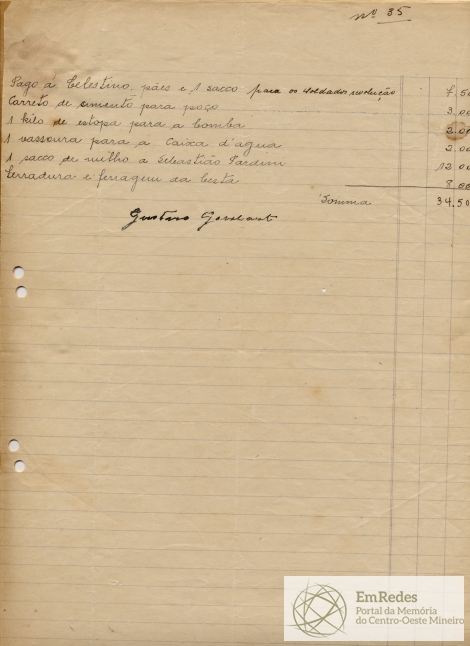 Nº 35
Pago á Celestino, pães e 1 sacco para os soldados revolução 7.50
Carreto de cimento para poço 3.00
1 kilo de estopa para a bomba 2.00
1 vassoura para a Caixa d'agua 2.00
1 sacco de milho a Sebastião Jardim 12.00
Ferradura e ferragem da besta 8.00
Somma 34.50
Gustavo
EmRedes
Portal da Memória
do Centro-Oeste Mineiro